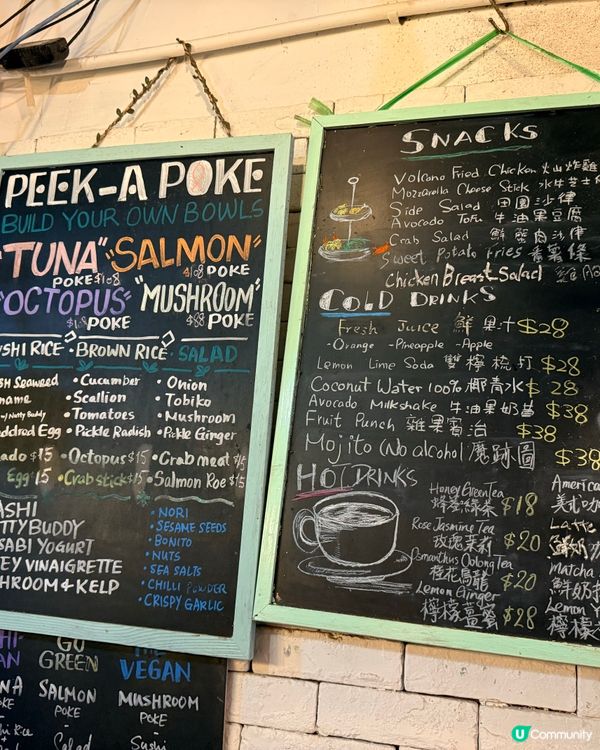 PEEK-A POKE
BUILD YOUR OWN BOWLS
"TUNA" "SALMON"
POKE $108 $108 POKE
"OCTOPUS" "MUSHROOM"
POKE $88 POKE
SHI RICE • BROWN RICE • SALAD
SH Seaweed • Cucumber • Onion
name • Scallion • Tobiko
w/ Nutty Buddy • Tomatoes • Mushroom
ddred Egg • Pickle Radish • Pickle Ginger
ado $15 • Octopus $15 • Crab meat $15
Egg $15 • Crab stick $15 • Salmon Roe $15
ASHI
TTY BUDDY
SABI YOGURT
EY VINAIGRETTE
HROOM & KELP
• NORI
• SESAME SEEDS
• BONITO
• NUTS
• SEA SALTS
• CHILLI POWDER
• CRISPY GARLIC
GO
GREEN
VEGAN
SALMON
POKE
MUSHROOM
POKE
Salad
Sushi
SNACKS
Volcano Fried Chicken 火山炸雞
Mozzarella Cheese Stick 水牛芝士
Side Salad 田園沙律
Avocado Tofu 牛油果豆腐
Crab Salad 鮮蟹肉沙律
Sweet Potato Fries 蕃薯條
Chicken Breast Salad
COLD DRINKS
Fresh Juice 鮮果汁 $28
-Orange -Pineapple -Apple
Lemon Lime Soda 雙檸梳打 $28
Coconut Water 100% 椰青水 $28
Avocado Milkshake 牛油果奶昔 $38
Fruit Punch 雜果賓治 $38
Mojito (No alcohol) 魔跡圖 $38
HOT DRINKS
Honey Green Tea
蜂蜜綠茶 $18
Rose Jasmine Tea
玫瑰茉莉 $20
Osmanthus Oolong Tea
桂花烏龍 $20
Lemon Ginger
檸檬薑蜜 $28
America
美式咖
Latte
鮮奶
Matcha
鮮奶抹
Lemon
檸檬
U Community